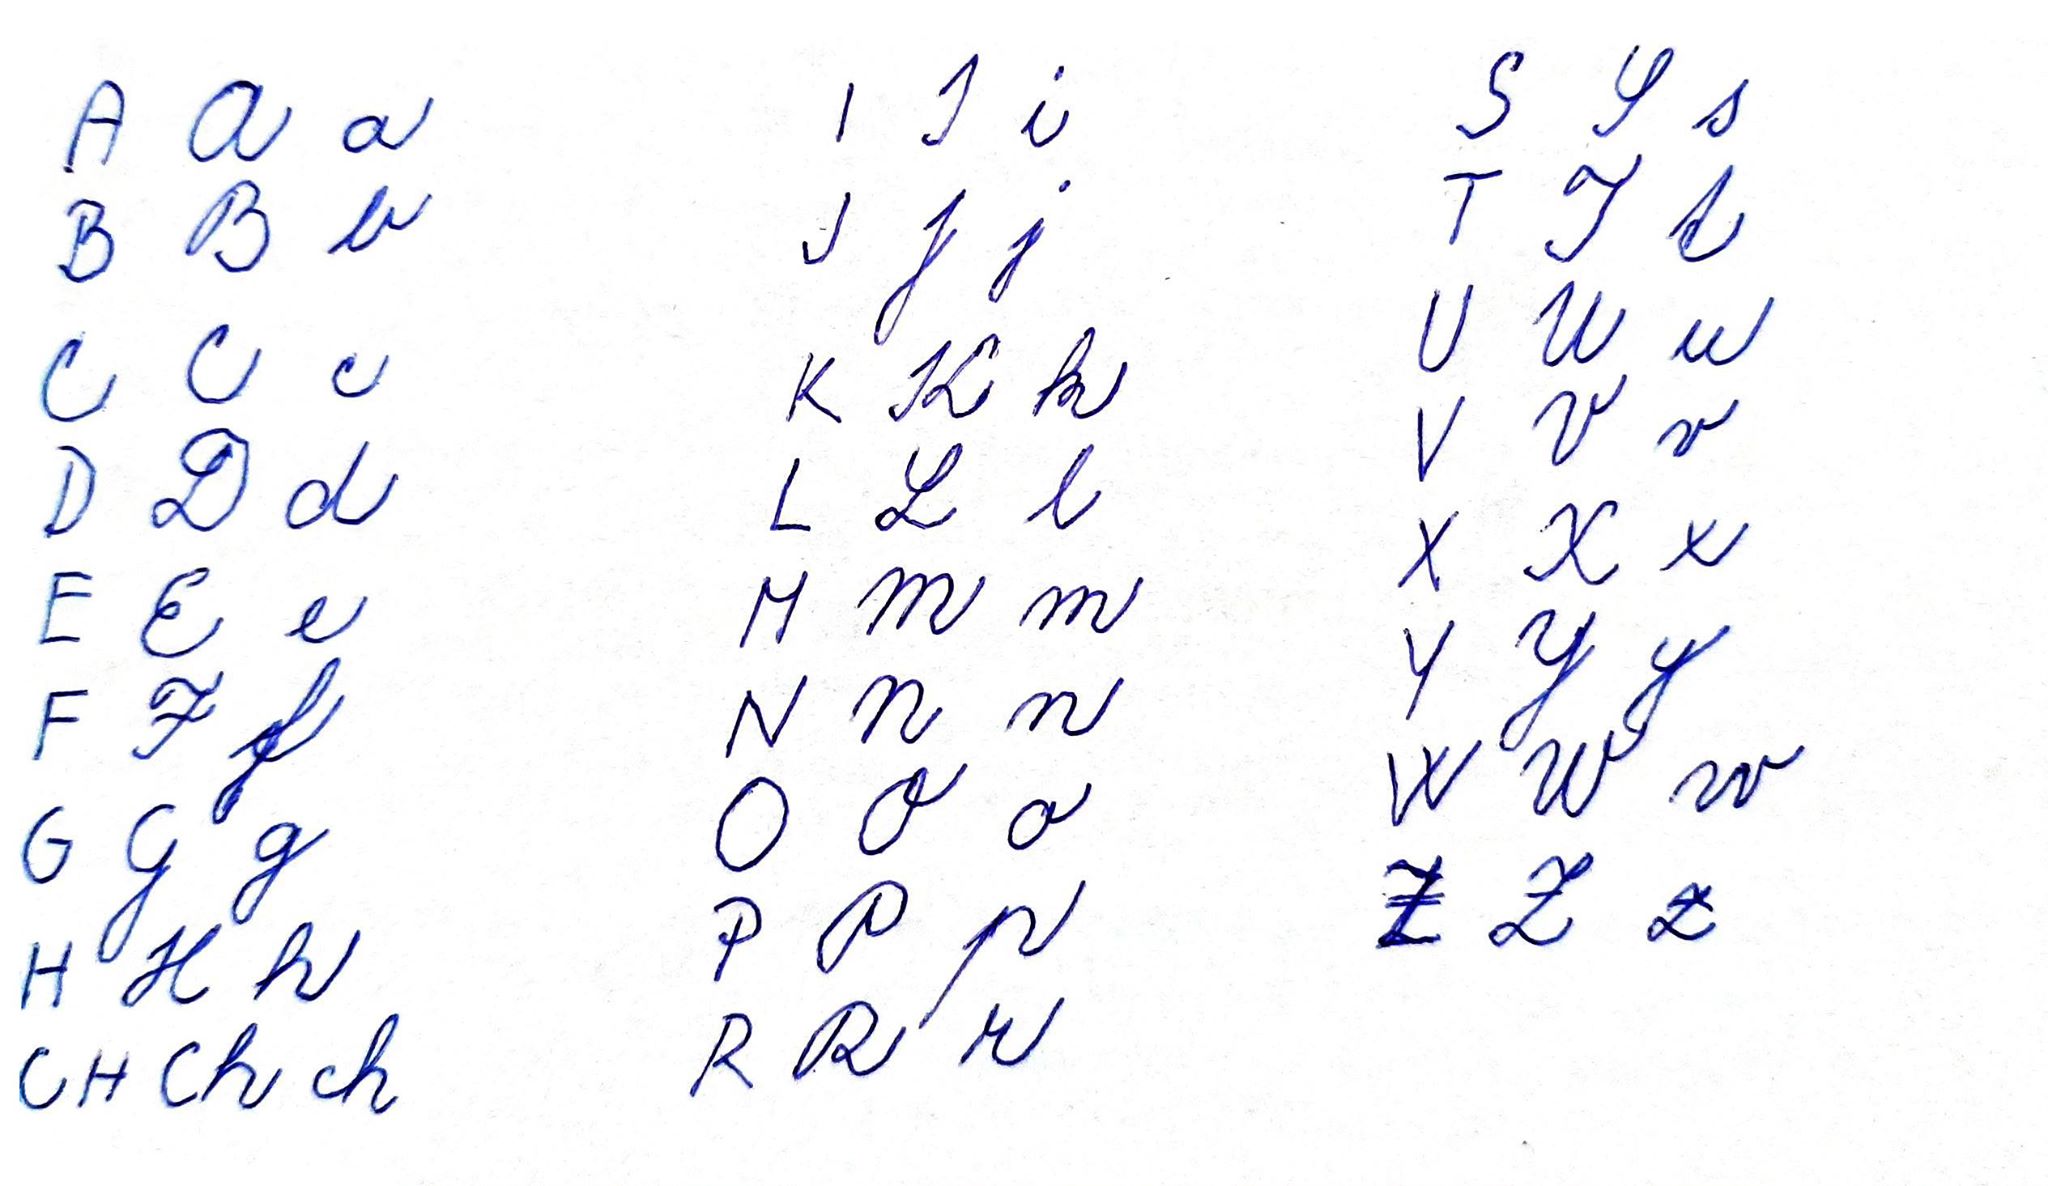 A A a
B B b
C C c
D D d
E E e
F F f
G G g
H H h
CH Ch ch
I I i
J J j
K K k
L L l
M M m
N N n
O O o
P P p
R R r
S S s
T T t
U U u
V V v
X X x
Y Y y
W W w
Z Z z